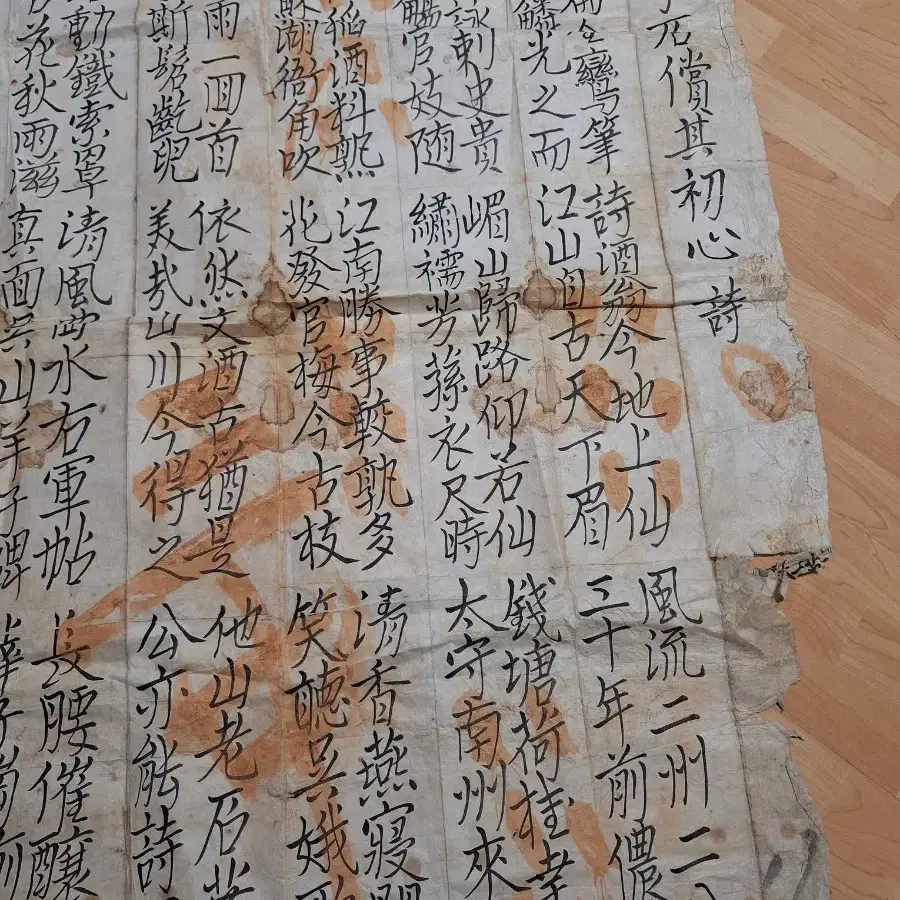 償其初心詩
鸞筆 詩酒翁今地上仙 風流二州二
光之而 江山自古天下眉 三十年前儂
詠刺史貴 嵋山歸路仰若仙 錢塘荷桂
觴官妓随 繡襦芳蓀衣尺時 太守南州來
稻酒料熟 江南勝事較孰多 清香燕寢
蘇湖衙角吹 花發官梅今古枝 笑聽吳娥
雨一回首 依然文酒古猶是 他山老石
斯髯齯 美哉山川今得之 公亦能詩
動鐵索罩 清風曲水右軍帖 長腰催釀
花秋雨滋 真面吳山羊子碑